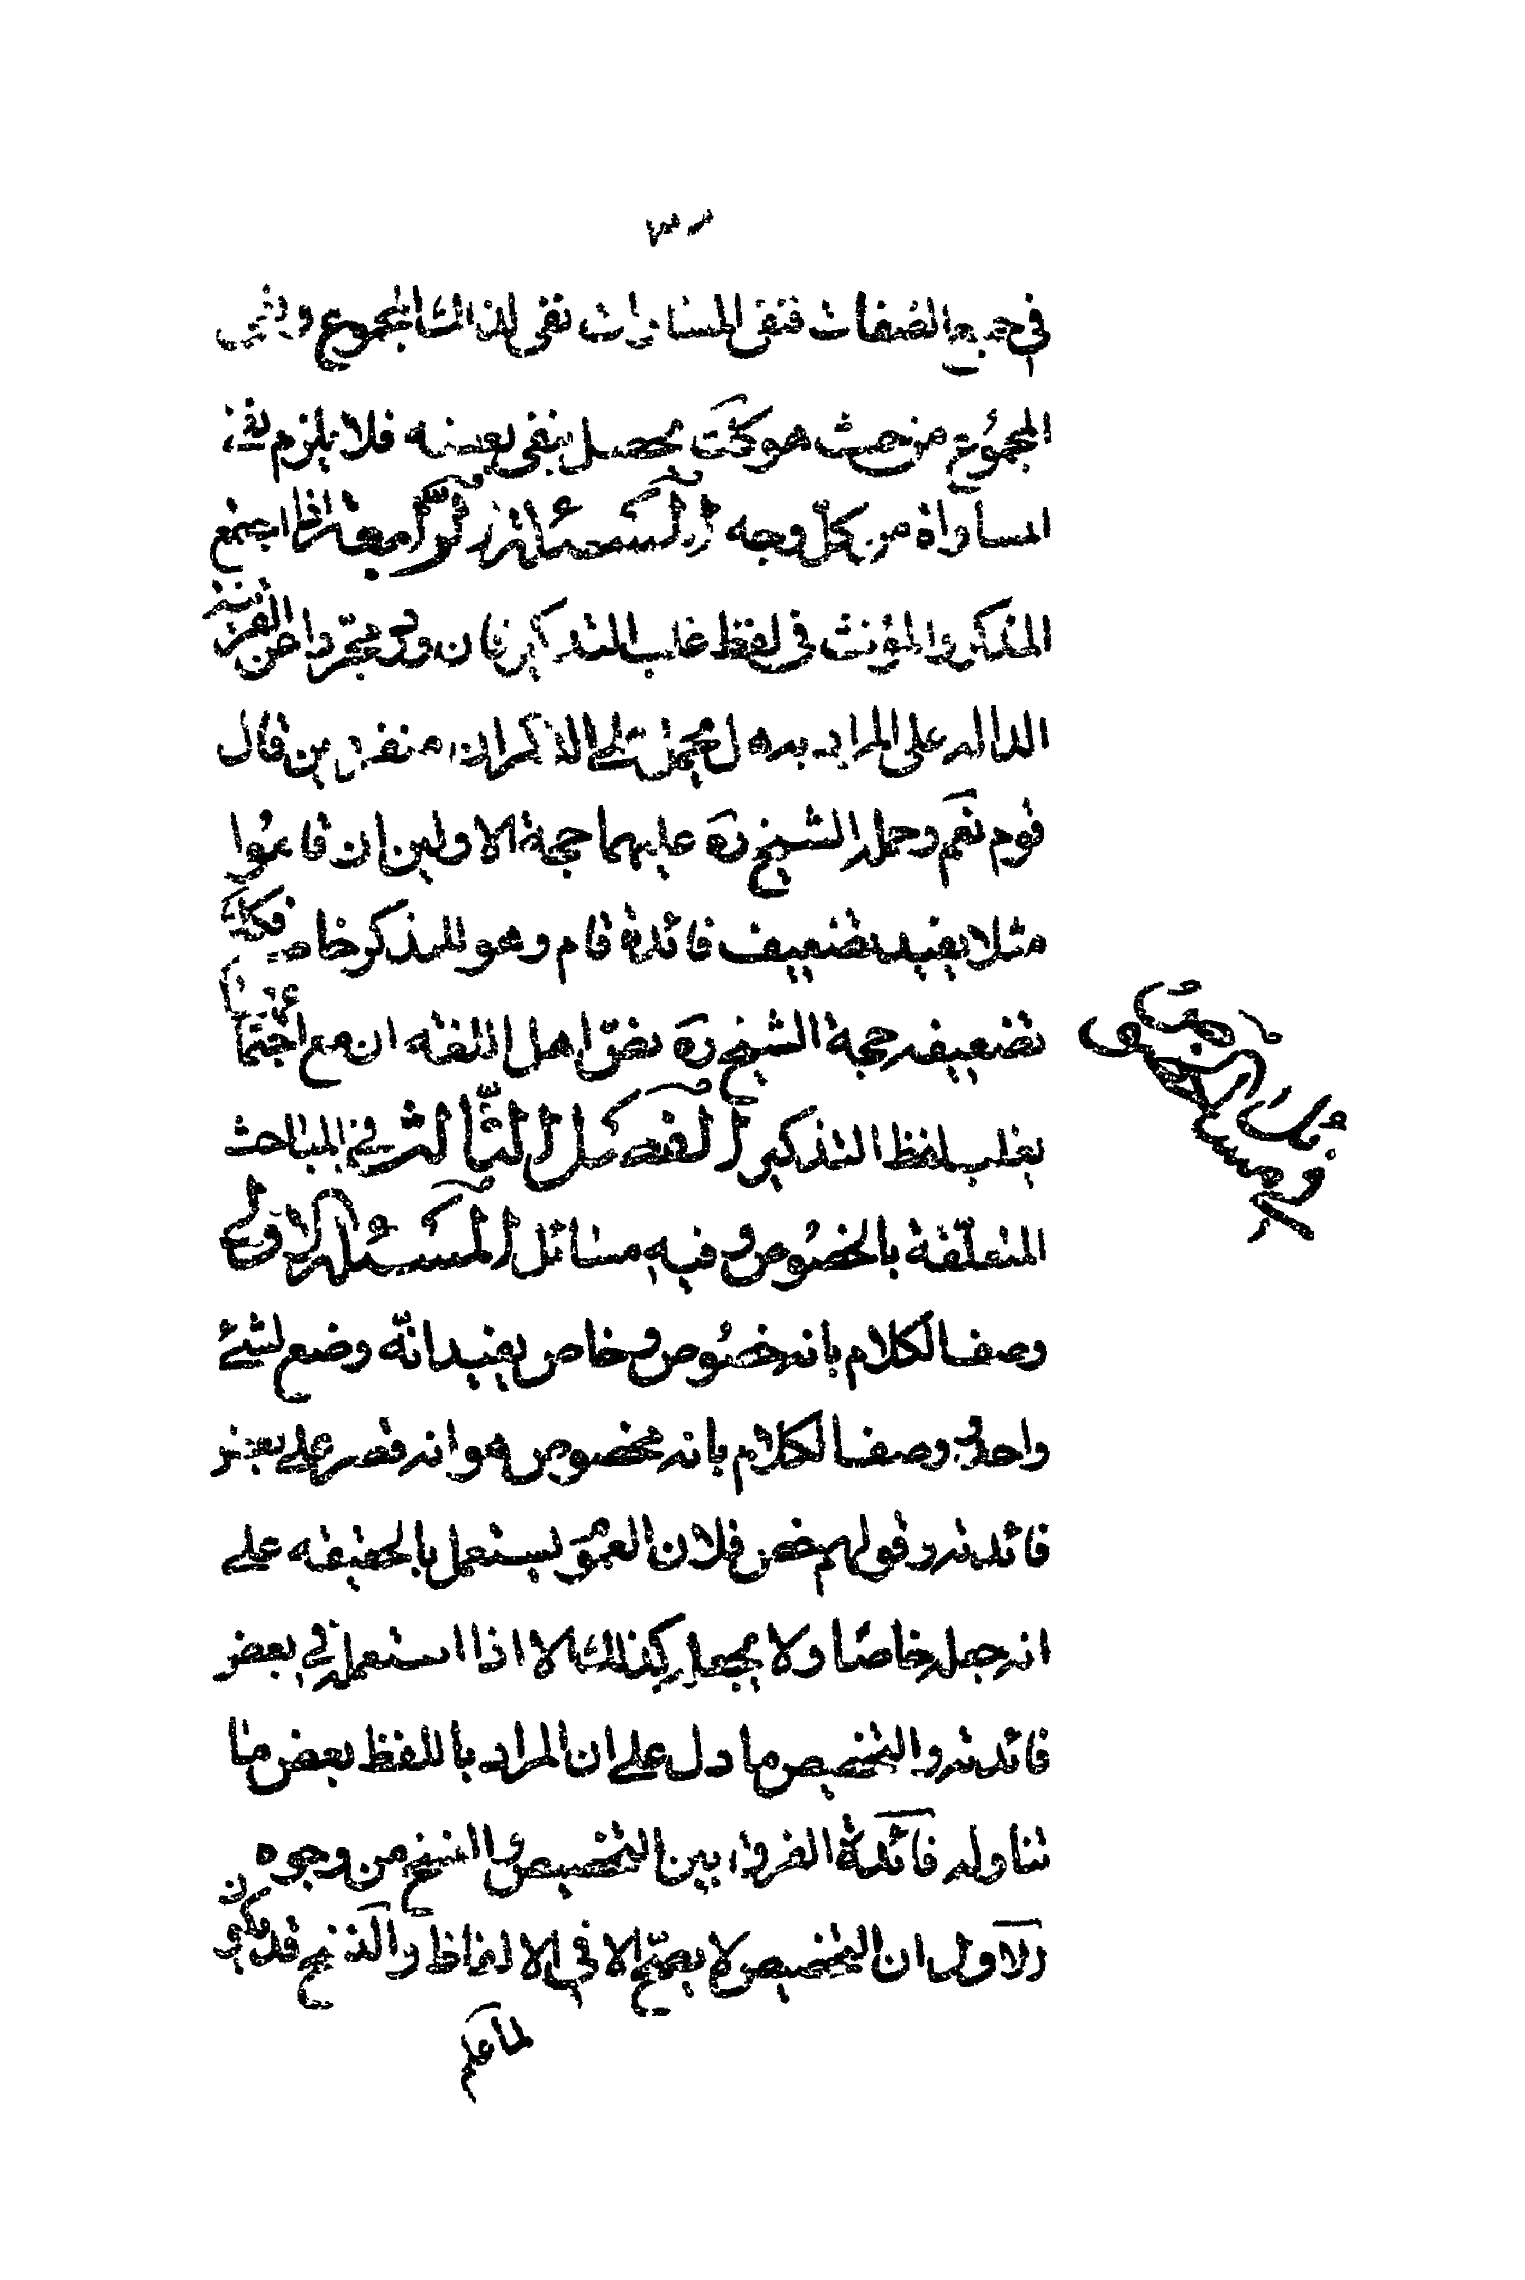 في جميع الصفات فنفى المساوات نفى لهذا المجموع ونفى
المجموع من حيث هو كك يحصل بنفى بعضه فلا يلزم نفى
المساواة من كل وجه المسئلة اذا اجتمع
المذكر والمؤنث في لفظ غلب التذكير فان ورد مجردا عن القرينة
الدالة على المراد به هل يحمل على الذكران منفردين قال
قوم نعم وحمله الشيخ ره عليهما حجة الاولين ان قاموا
مثلا يفيد تضعيف فائدة قام وهو للمذكر خاصة فكك
تضعيفه حجة الشيخ ره نص اهل اللغة ان مع اجتماعهما
يغلب لفظ التذكير الفصل الثالث في المباحث
المتعلقة بالخصوص وفيه مسائل المسئلة الاولى
وصف الكلام بانه خصوص وخاص يفيد انه وضع لشئ
واحد ووصف الكلام بانه مخصوص هو انه قصر على بعض
فائدته وقولهم خص فلان العموم يستعمل بالحقيقه على
انه جعله خاصا ولا يجعله كذلك الا اذا استعمله في بعض
فائدته والتخصيص ما دل على ان المراد باللفظ بعض ما
تناوله فائدة الفرق بين التخصيص والنسخ من وجوه
الاول ان التخصيص لا يصح الا في الالفاظ والنسخ قد يكون
لما علم